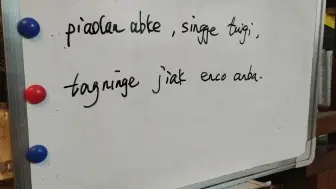 piaolan abke, singge tugi,
togninge jiak enco anba.